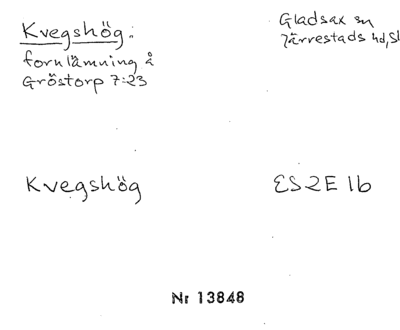 Kvegshög:
fornlämning å
Gröstorp 7:23
Gladsax sn
Järrestads hd, Sk
Kvegshög
ES2E 1b
Nr 13848